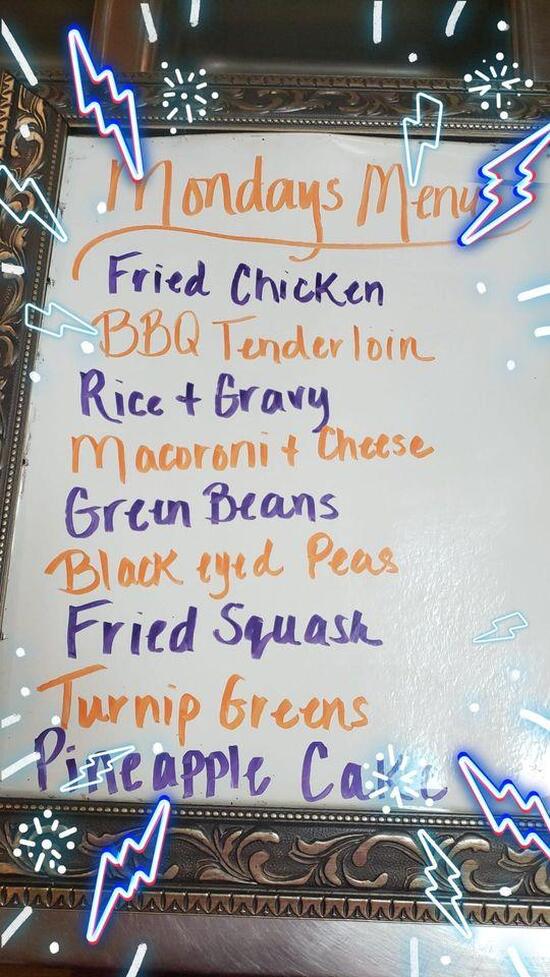 Mondays Menu
Fried Chicken
BBQ Tenderloin
Rice + Gravy
Macoroni + Cheese
Green Beans
Black eyed Peas
Fried Squash
Turnip Greens
Pineapple Cake